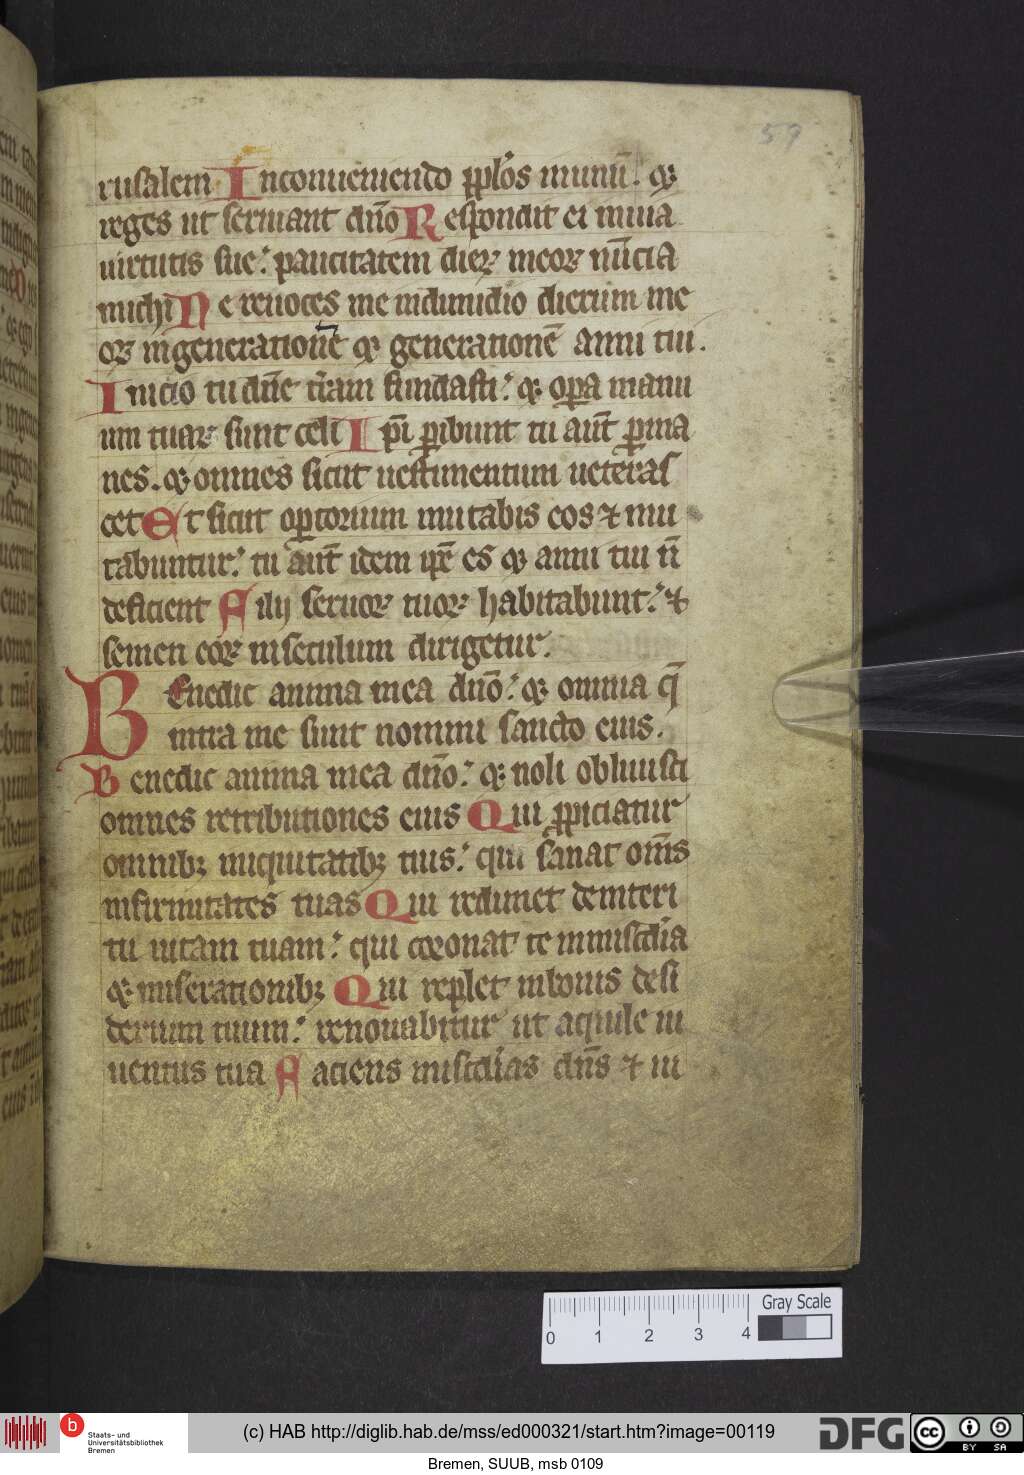 59
rusalem In conueniendo pp̱los in unū: ꝙ
reges ut seruiant dn̄o Respondit ei in uia
uirtutis sue: paucitatem dieꝝ meoꝝ nūcia
michi Ne reuoces me in dimidio dierum me
oꝝ in generationē ꝙ generationē anni tui.
Inicio tu dn̄e tr̄am fundasti: ꝙ oꝑa manu
um tuaꝝ sunt celi Ip̄i ꝑibunt tu aut̄ ꝑma
nes. ꝙ omnes sicut uestimentum ueteras
cet Et sicut oꝑtorium mutabis eos ⁊ mu
tabuntur: tu aut̄ idem ip̄e es ꝙ anni tui n̄
deficient Filij seruoꝝ tuoꝝ habitabunt: ⁊
semen eoꝝ in seculum dirigetur.
Benedic anima mea dn̄o: ꝙ omnia q̄
intra me sunt nomini sancto eius.
Benedic anima mea dn̄o: ꝙ noli obliuisci
omnes retributiones eius Qui ꝓpiciatur
omnibꝫ iniquitatibꝫ tuis: qui sanat om̄s
infirmitates tuas Qui redimet de interi
tu uitam tuam: qui coronat te in misc̄dia
ꝙ miserationibꝫ Qui replet in bonis desi
derium tuum: renouabitur ut aquile iu
uentus tua Faciens misc̄dias dn̄s ⁊ iu
0 1 2 3 4 Gray Scale
b Staats- und
Universitätsbibliothek
Bremen
(c) HAB http://diglib.hab.de/mss/ed000321/start.htm?image=00119
DFG cc BY SA
Bremen, SUUB, msb 0109